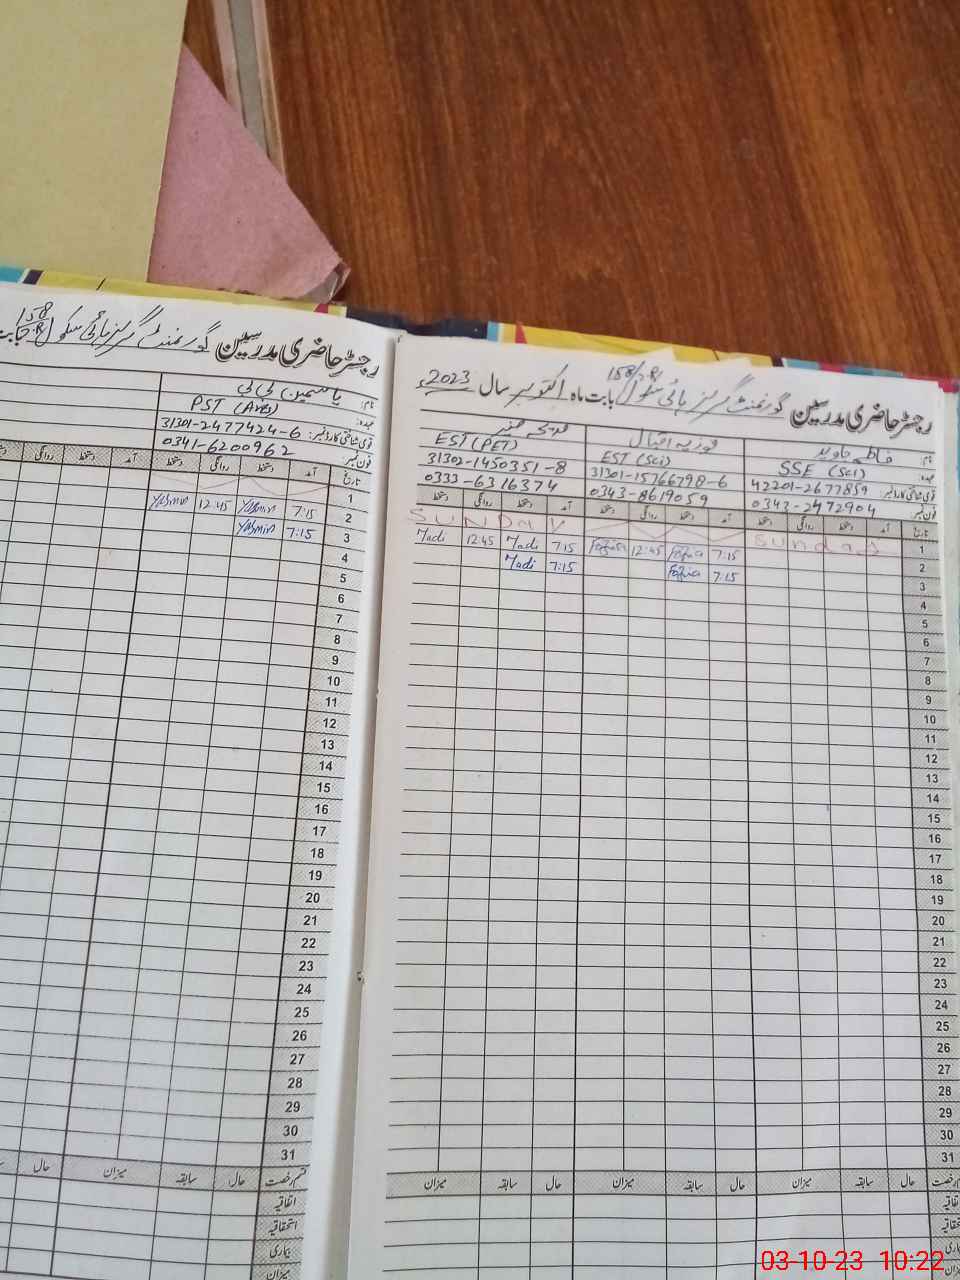 رجسٹر حاضری مدرسین گورنمنٹ گرلز ہائی سکول 158/R بابت
نام: یاسمین بی بی
عہدہ: PST (Arts)
قومی شناختی کارڈ نمبر: 31301-2477424-6
فون نمبر: 0341-6200962
تاریخ آمد دستخط روانگی دستخط آمد دستخط روانگی
1
2 7:15 Yasmin 12:45 Yasmin
3 7:15 Yasmin
4
5
6
7
8
9
10
11
12
13
14
15
16
17
18
19
20
21
22
23
24
25
26
27
28
29
30
31
قسم رخصت حال سابقہ میزان حال
اتفاقیہ
استحقاقیہ
بیماری
میزان
رجسٹر حاضری مدرسین گورنمنٹ گرلز ہائی سکول 158/R بابت ماہ اکتوبر سال 2023ء
نام: فاطمہ جاوید فوزیہ اقبال مدیحہ منیر
عہدہ: SSE (Sci) EST (Sci) EST (PET)
قومی شناختی کارڈ نمبر: 42201-2677859 31301-15766798-6 31302-1450351-8
فون نمبر: 0343-2472904 0343-8619059 0333-6316374
تاریخ آمد دستخط روانگی دستخط آمد دستخط روانگی دستخط آمد دستخط روانگی دستخط
1 Sunday SUNDAY
2 7:15 Fozia 12:45 Fozia 7:15 Madi 12:45 Madi
3 7:15 Fozia 7:15 Madi
4
5
6
7
8
9
10
11
12
13
14
15
16
17
18
19
20
21
22
23
24
25
26
27
28
29
30
31
رخصت حال سابقہ میزان حال سابقہ میزان حال سابقہ میزان
03-10-23 10:22